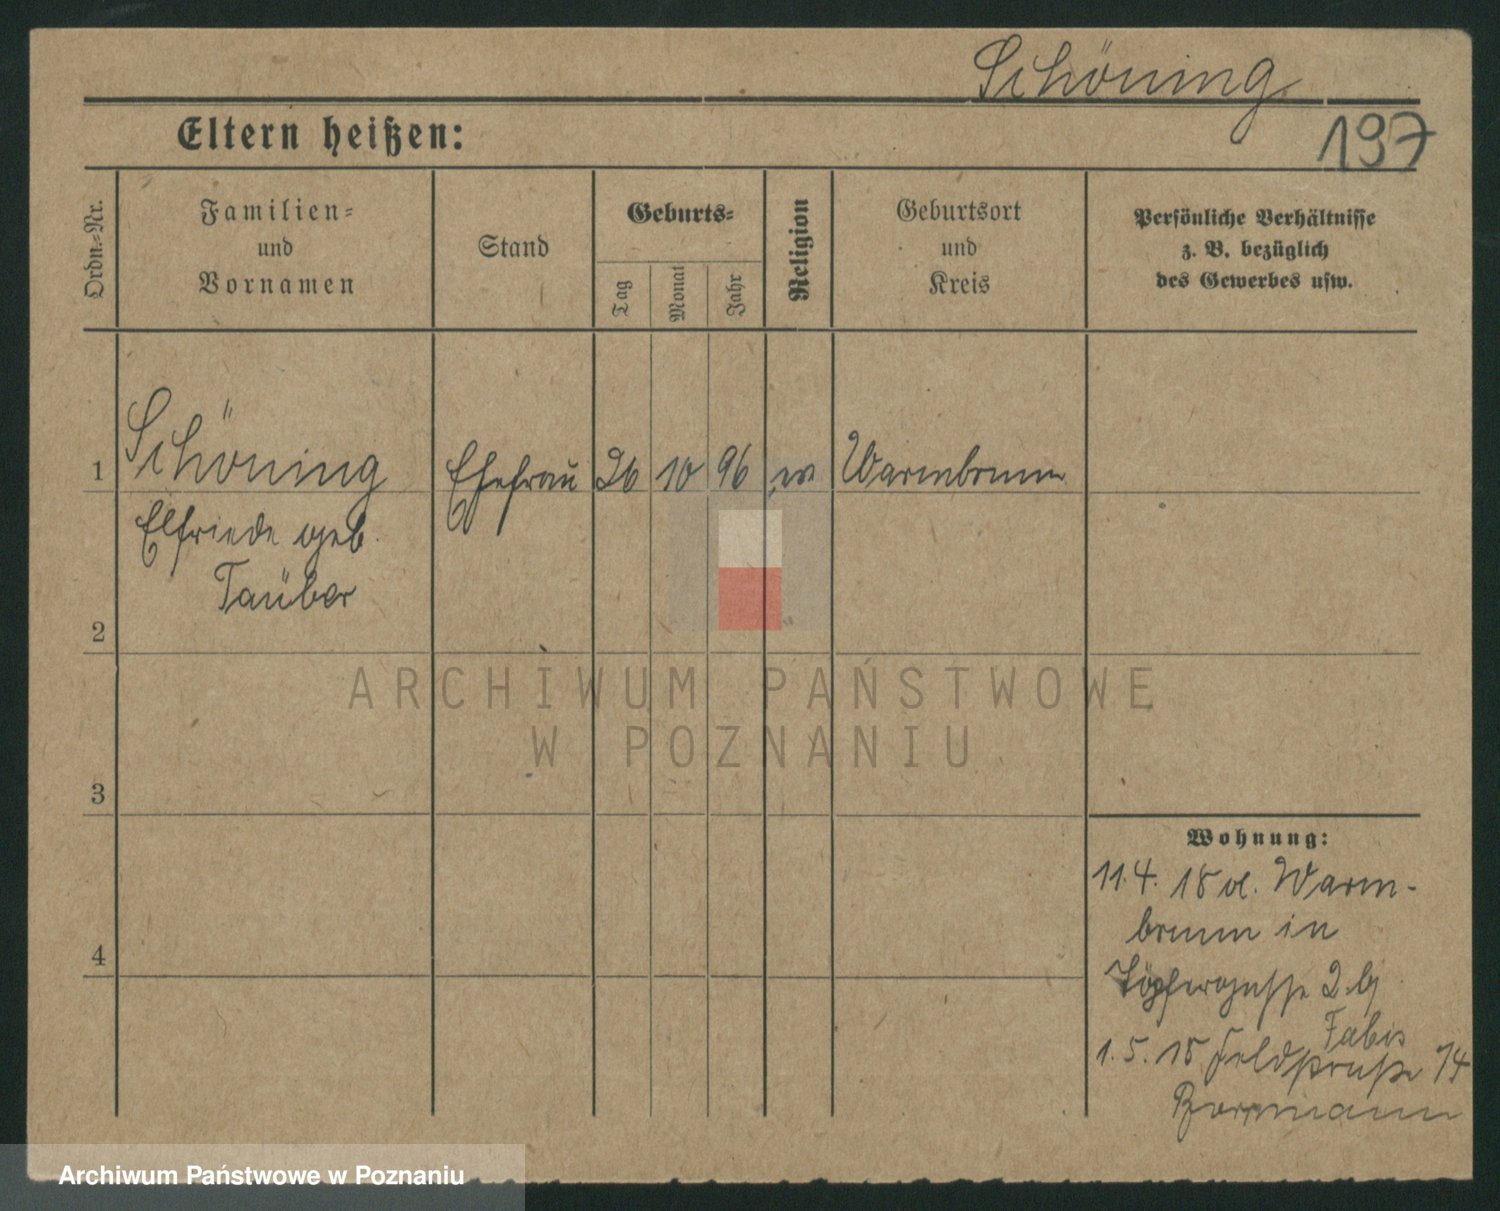 Schöning
197
Eltern heißen:
Ordn.-Nr.
Familien-
und
Vornamen
Stand
Geburts-
Tag
Monat
Jahr
Religion
Geburtsort
und
Kreis
Persönliche Verhältnisse
z. B. bezüglich
des Gewerbes usw.
1 Schöning Ehefrau 26 10 96 ev Warmbrunn
Elfriede geb.
Taüber
2
3
4
ARCHIWUM PAŃSTWOWE
W POZNANIU
Wohnung:
11.4. 18 Warm-
brunn in
Töpfergasse 2 b/
Fabis
1.5. 18 Feldstraße 74
Archiwum Państwowe w Poznaniu